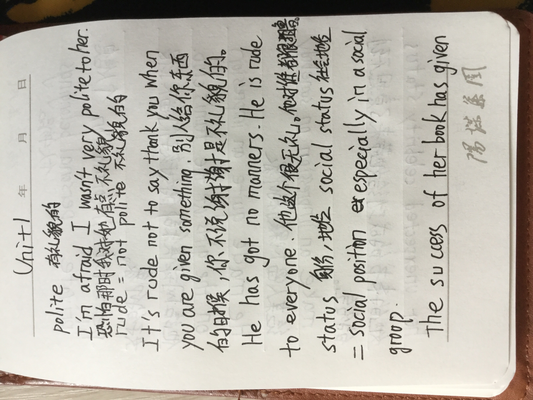 Unit 1 年 月 日
polite 有礼貌的
I'm afraid I wasn't very polite to her.
恐怕那时我对她有点不礼貌
rude = not polite 不礼貌的
It's rude not to say thank you when
you are given something. 别人给你东西
的时候,你不说谢谢是不礼貌的。
He has got no manners. He is rude
to everyone. 他这个很无礼。他对谁都很粗鲁。
status 身份,地位 social status 社会地位
= social position especially in a social
group.
The success of her book has given